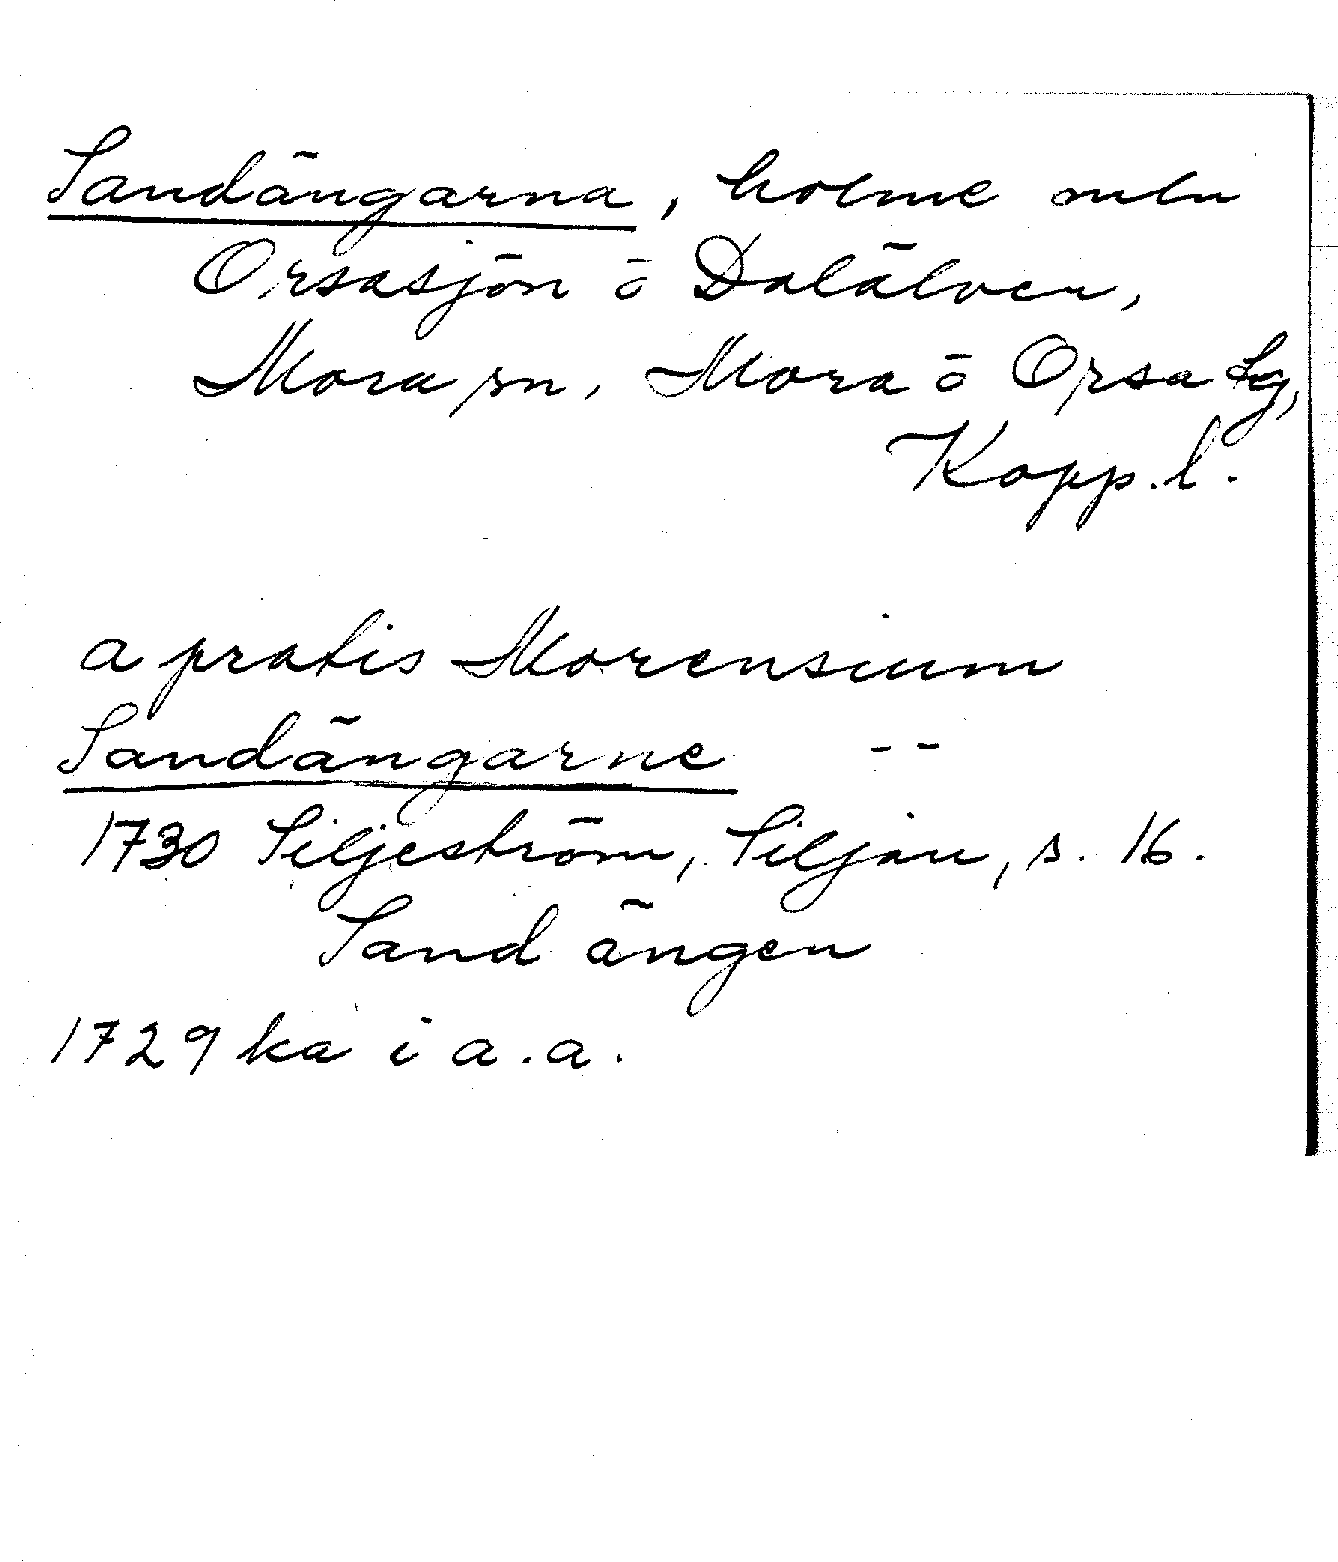 Sandängarna, holme mln
Orsasjön o Dalälven,
Mora sn, Mora o Orsa tg,
Kopp. l.
a pratis Morensium
Sandängarne --
1730 Siljeström, Siljan, s. 16.
Sand ängen
1729 ka i a.a.